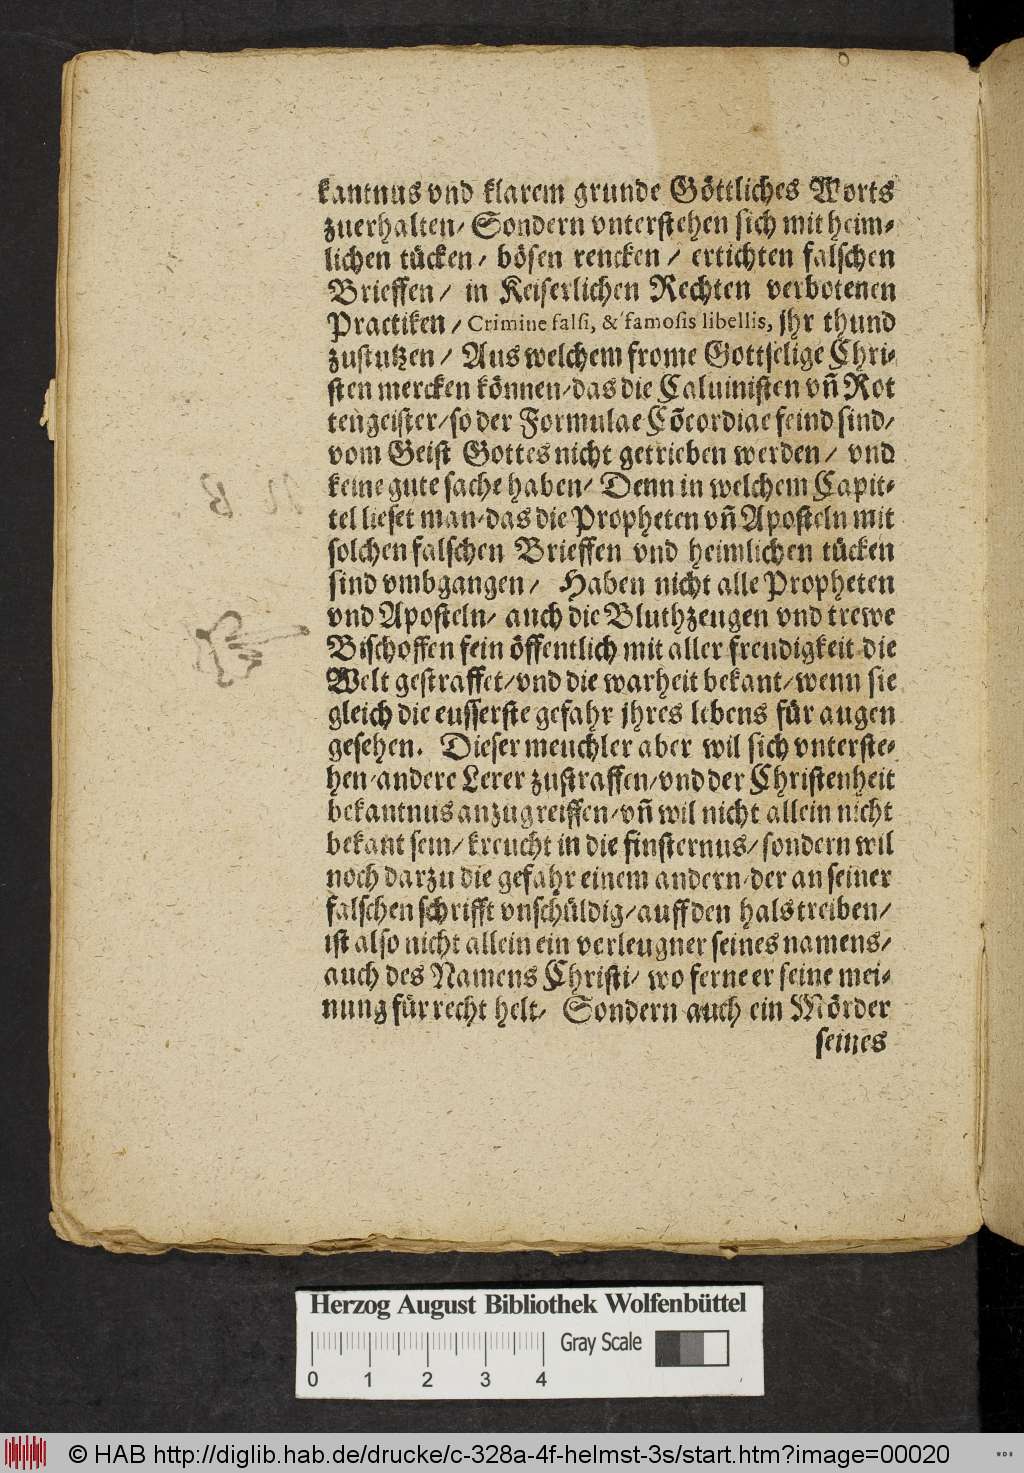 kantnus vnd klarem grunde Göttliches Worts
zuerhalten/ Sondern vnterstehen sich mit heim-
lichen tücken/ bösen rencken/ ertichten falschen
Brieffen/ in Keiserlichen Rechten verbotenen
Practiken/ Crimine falsi, & famosis libellis, jhr thund
zustutzen/ Aus welchem frome Gottselige Chri-
sten mercken können/ das die Caluinisten vñ Rot
tengeister/ so der Formulae Cõcordiae feind sind/
vom Geist Gottes nicht getrieben werden/ vnd
keine gute sache haben/ Denn in welchem Capit-
tel lieset man/ das die Propheten vñ Aposteln mit
solchen falschen Brieffen vnd heimlichen tücken
sind vmbgangen/ Haben nicht alle Propheten
vnd Aposteln/ auch die Bluthzeugen vnd trewe
Bischoffen fein öffentlich mit aller freudigkeit die
Welt gestraffet/ vnd die warheit bekant/ wenn sie
gleich die eusserste gefahr jhres lebens für augen
gesehen. Dieser meuchler aber wil sich vnterste-
hen/ andere Lerer zustraffen/ vnd der Christenheit
bekantnus anzugreiffen/ vñ wil nicht allein nicht
bekant sein/ kreucht in die finsternus/ sondern wil
noch darzu die gefahr einem andern/ der an seiner
falschen schrifft vnschüldig/ auff den hals treiben/
ist also nicht allein ein verleugner seines namens/
auch des Namens Christi/ wo ferne er seine mei-
nung für recht helt/ Sondern auch ein Mörder
seines
Herzog August Bibliothek Wolfenbüttel
Gray Scale
0 1 2 3 4
© HAB http://diglib.hab.de/drucke/c-328a-4f-helmst-3s/start.htm?image=00020